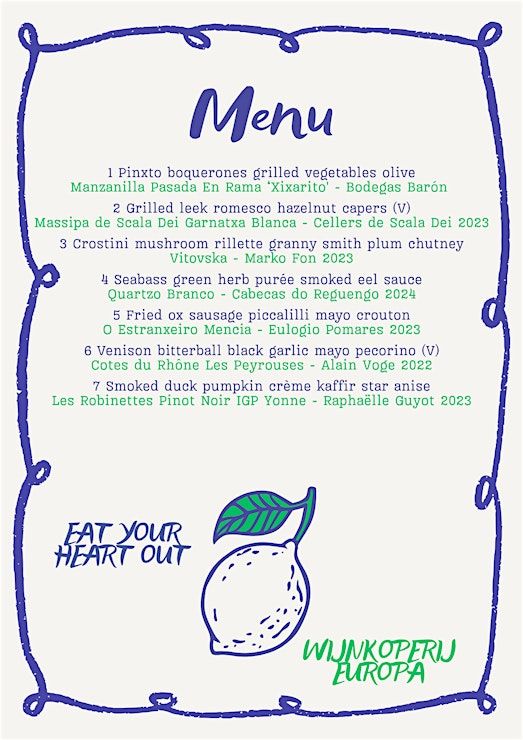 Menu
1 Pinxto boquerones grilled vegetables olive
Manzanilla Pasada En Rama 'Xixarito' - Bodegas Barón
2 Grilled leek romesco hazelnut capers (V)
Massipa de Scala Dei Garnatxa Blanca - Cellers de Scala Dei 2023
3 Crostini mushroom rillette granny smith plum chutney
Vitovska - Marko Fon 2023
4 Seabass green herb purée smoked eel sauce
Quartzo Branco - Cabecas do Reguengo 2024
5 Fried ox sausage piccalilli mayo crouton
O Estranxeiro Mencia - Eulogio Pomares 2023
6 Venison bitterball black garlic mayo pecorino (V)
Cotes du Rhône Les Peyrouses - Alain Voge 2022
7 Smoked duck pumpkin crème kaffir star anise
Les Robinettes Pinot Noir IGP Yonne - Raphaëlle Guyot 2023
EAT YOUR
HEART OUT
WIJNKOPERIJ
EUROPA